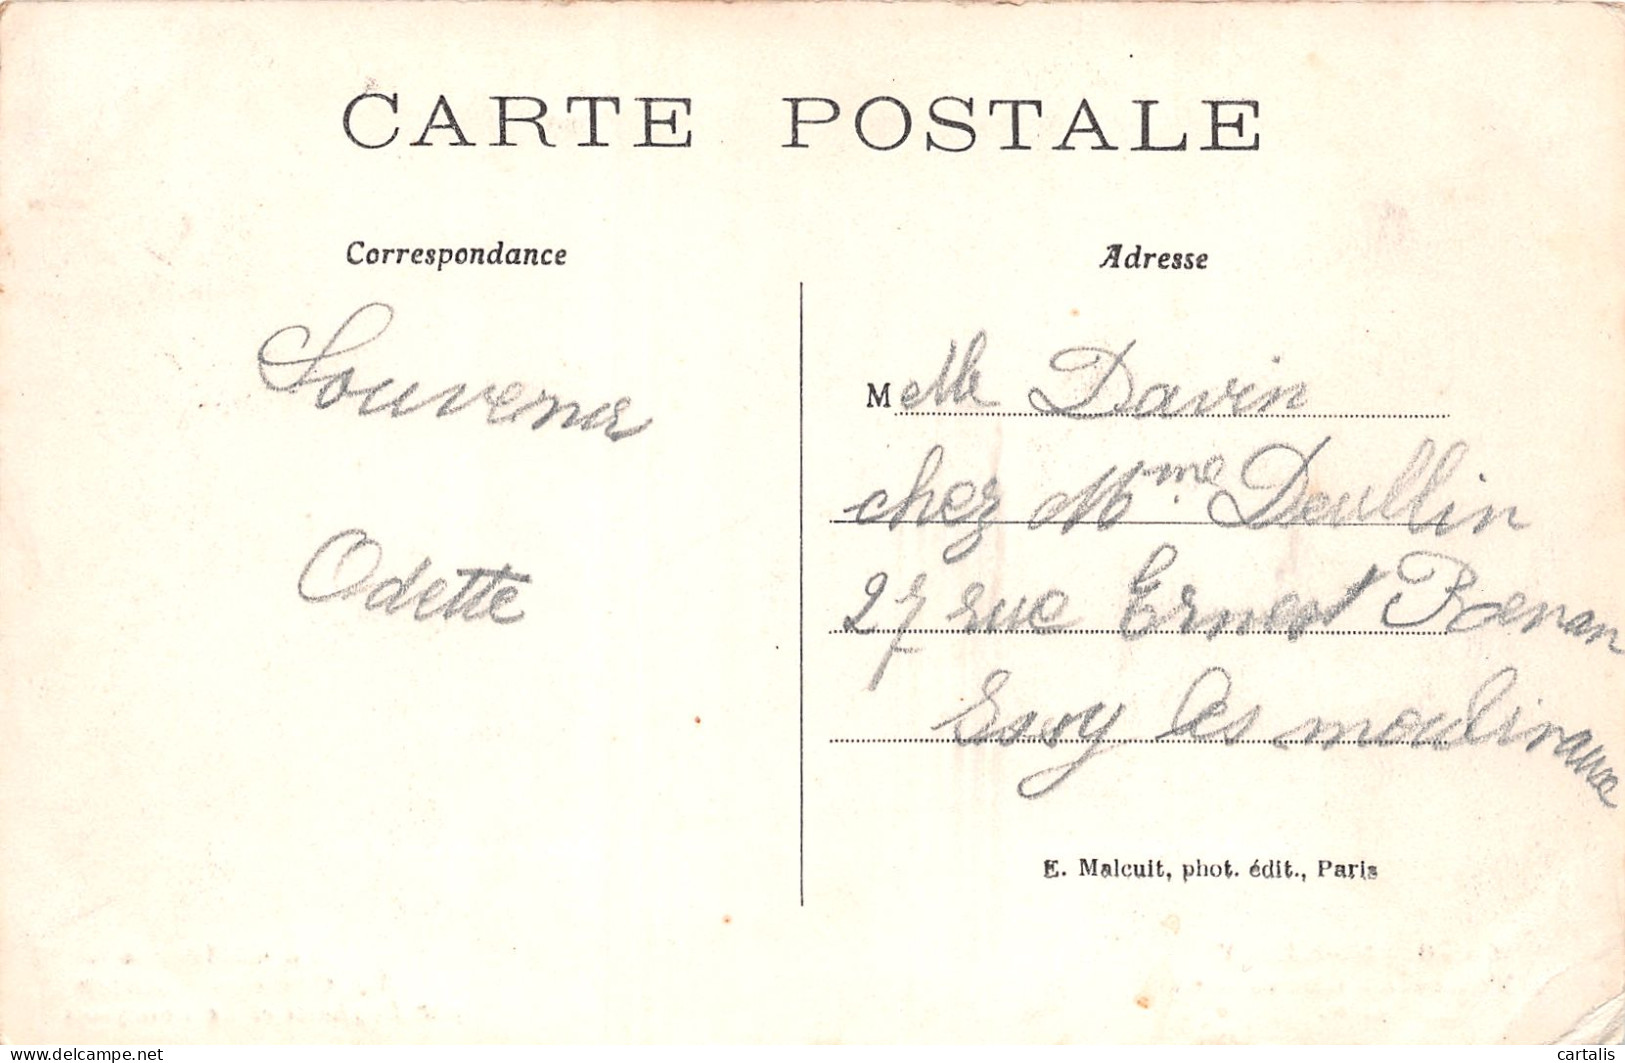 CARTE POSTALE
Correspondance
Adresse
Souvenir
Odette
Melle Davin
chez Mme Deullin
27 rue Ernest Renan
Issy les moulineaux
E. Malcuit, phot. édit., Paris
www.delcampe.net
cartalis